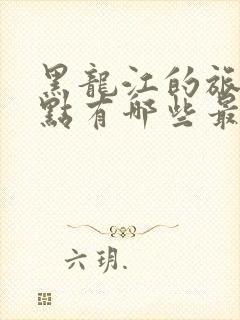 黑龍江的旅
點有哪些最
六玥.